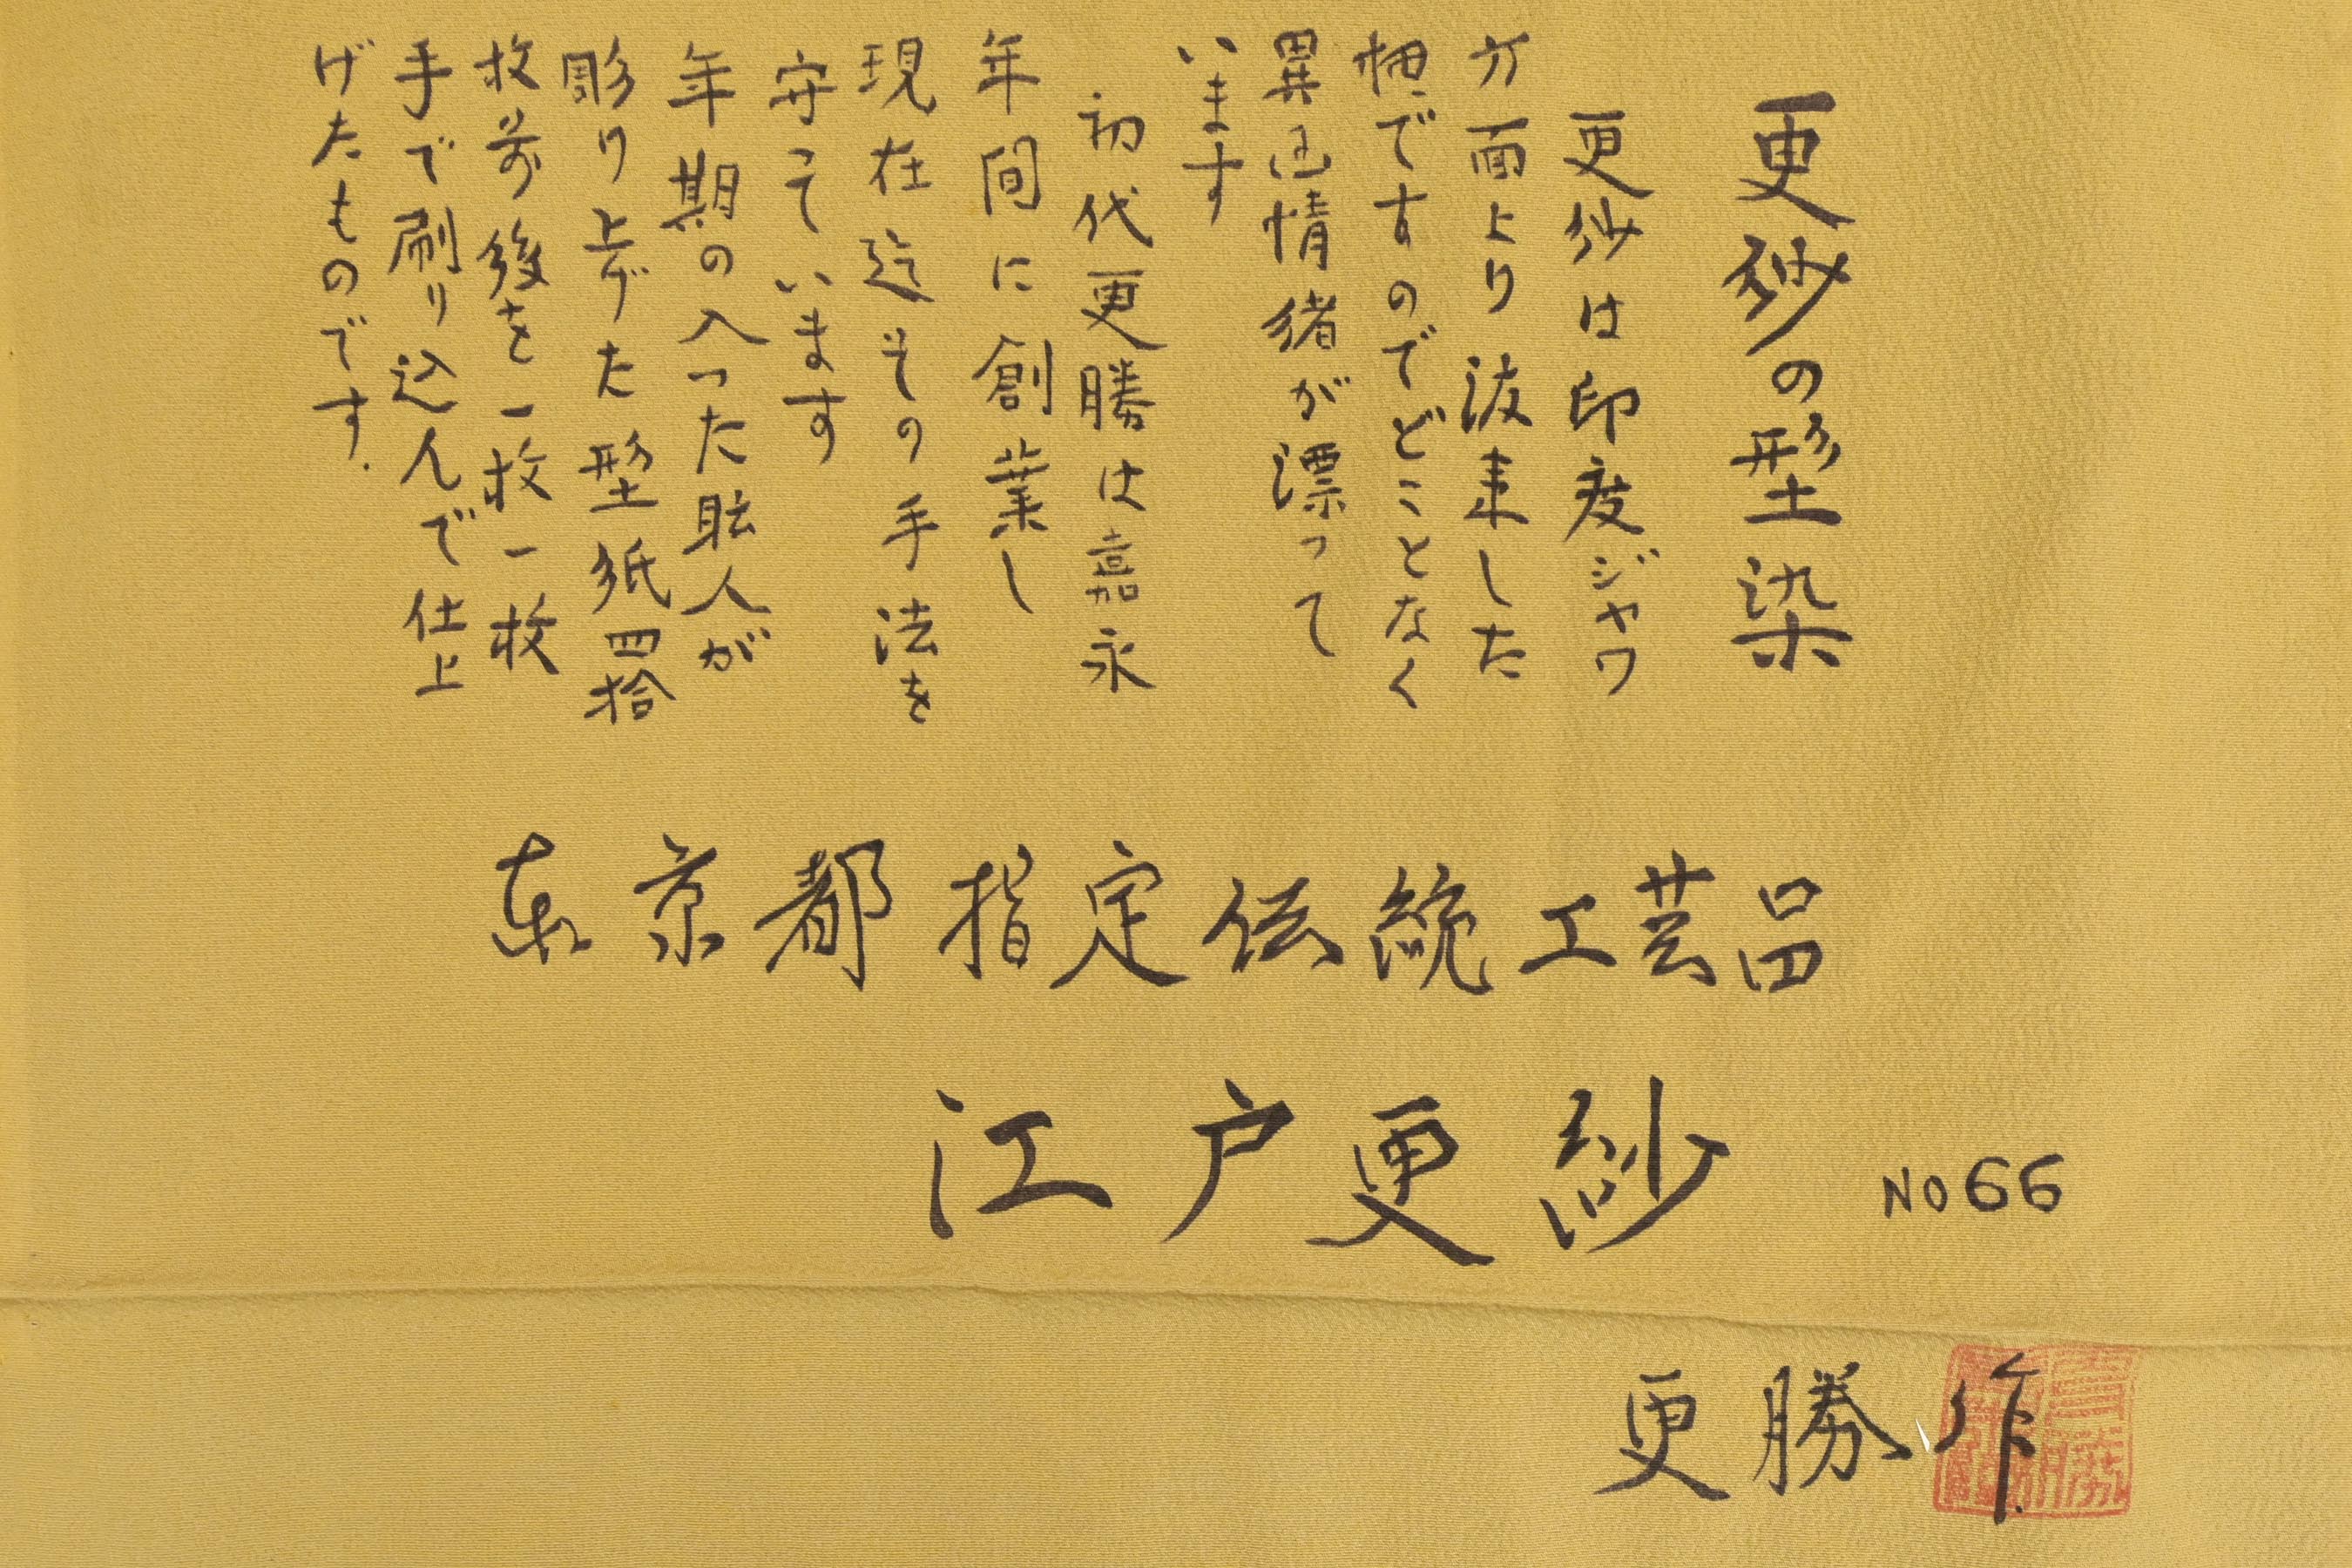 更紗の型染
更紗は印度ジャワ
方面より渡来した
柄ですのでどことなく
異国情緒が漂って
います
初代更勝は嘉永
年間に創業し
現在迄その手法を
守っています
年期の入った職人が
彫り上げた型紙四拾
枚前後を一枚一枚
手で刷り込んで仕上
げたものです.
東京都指定伝統工芸品
江戸更紗 NO66
更勝作